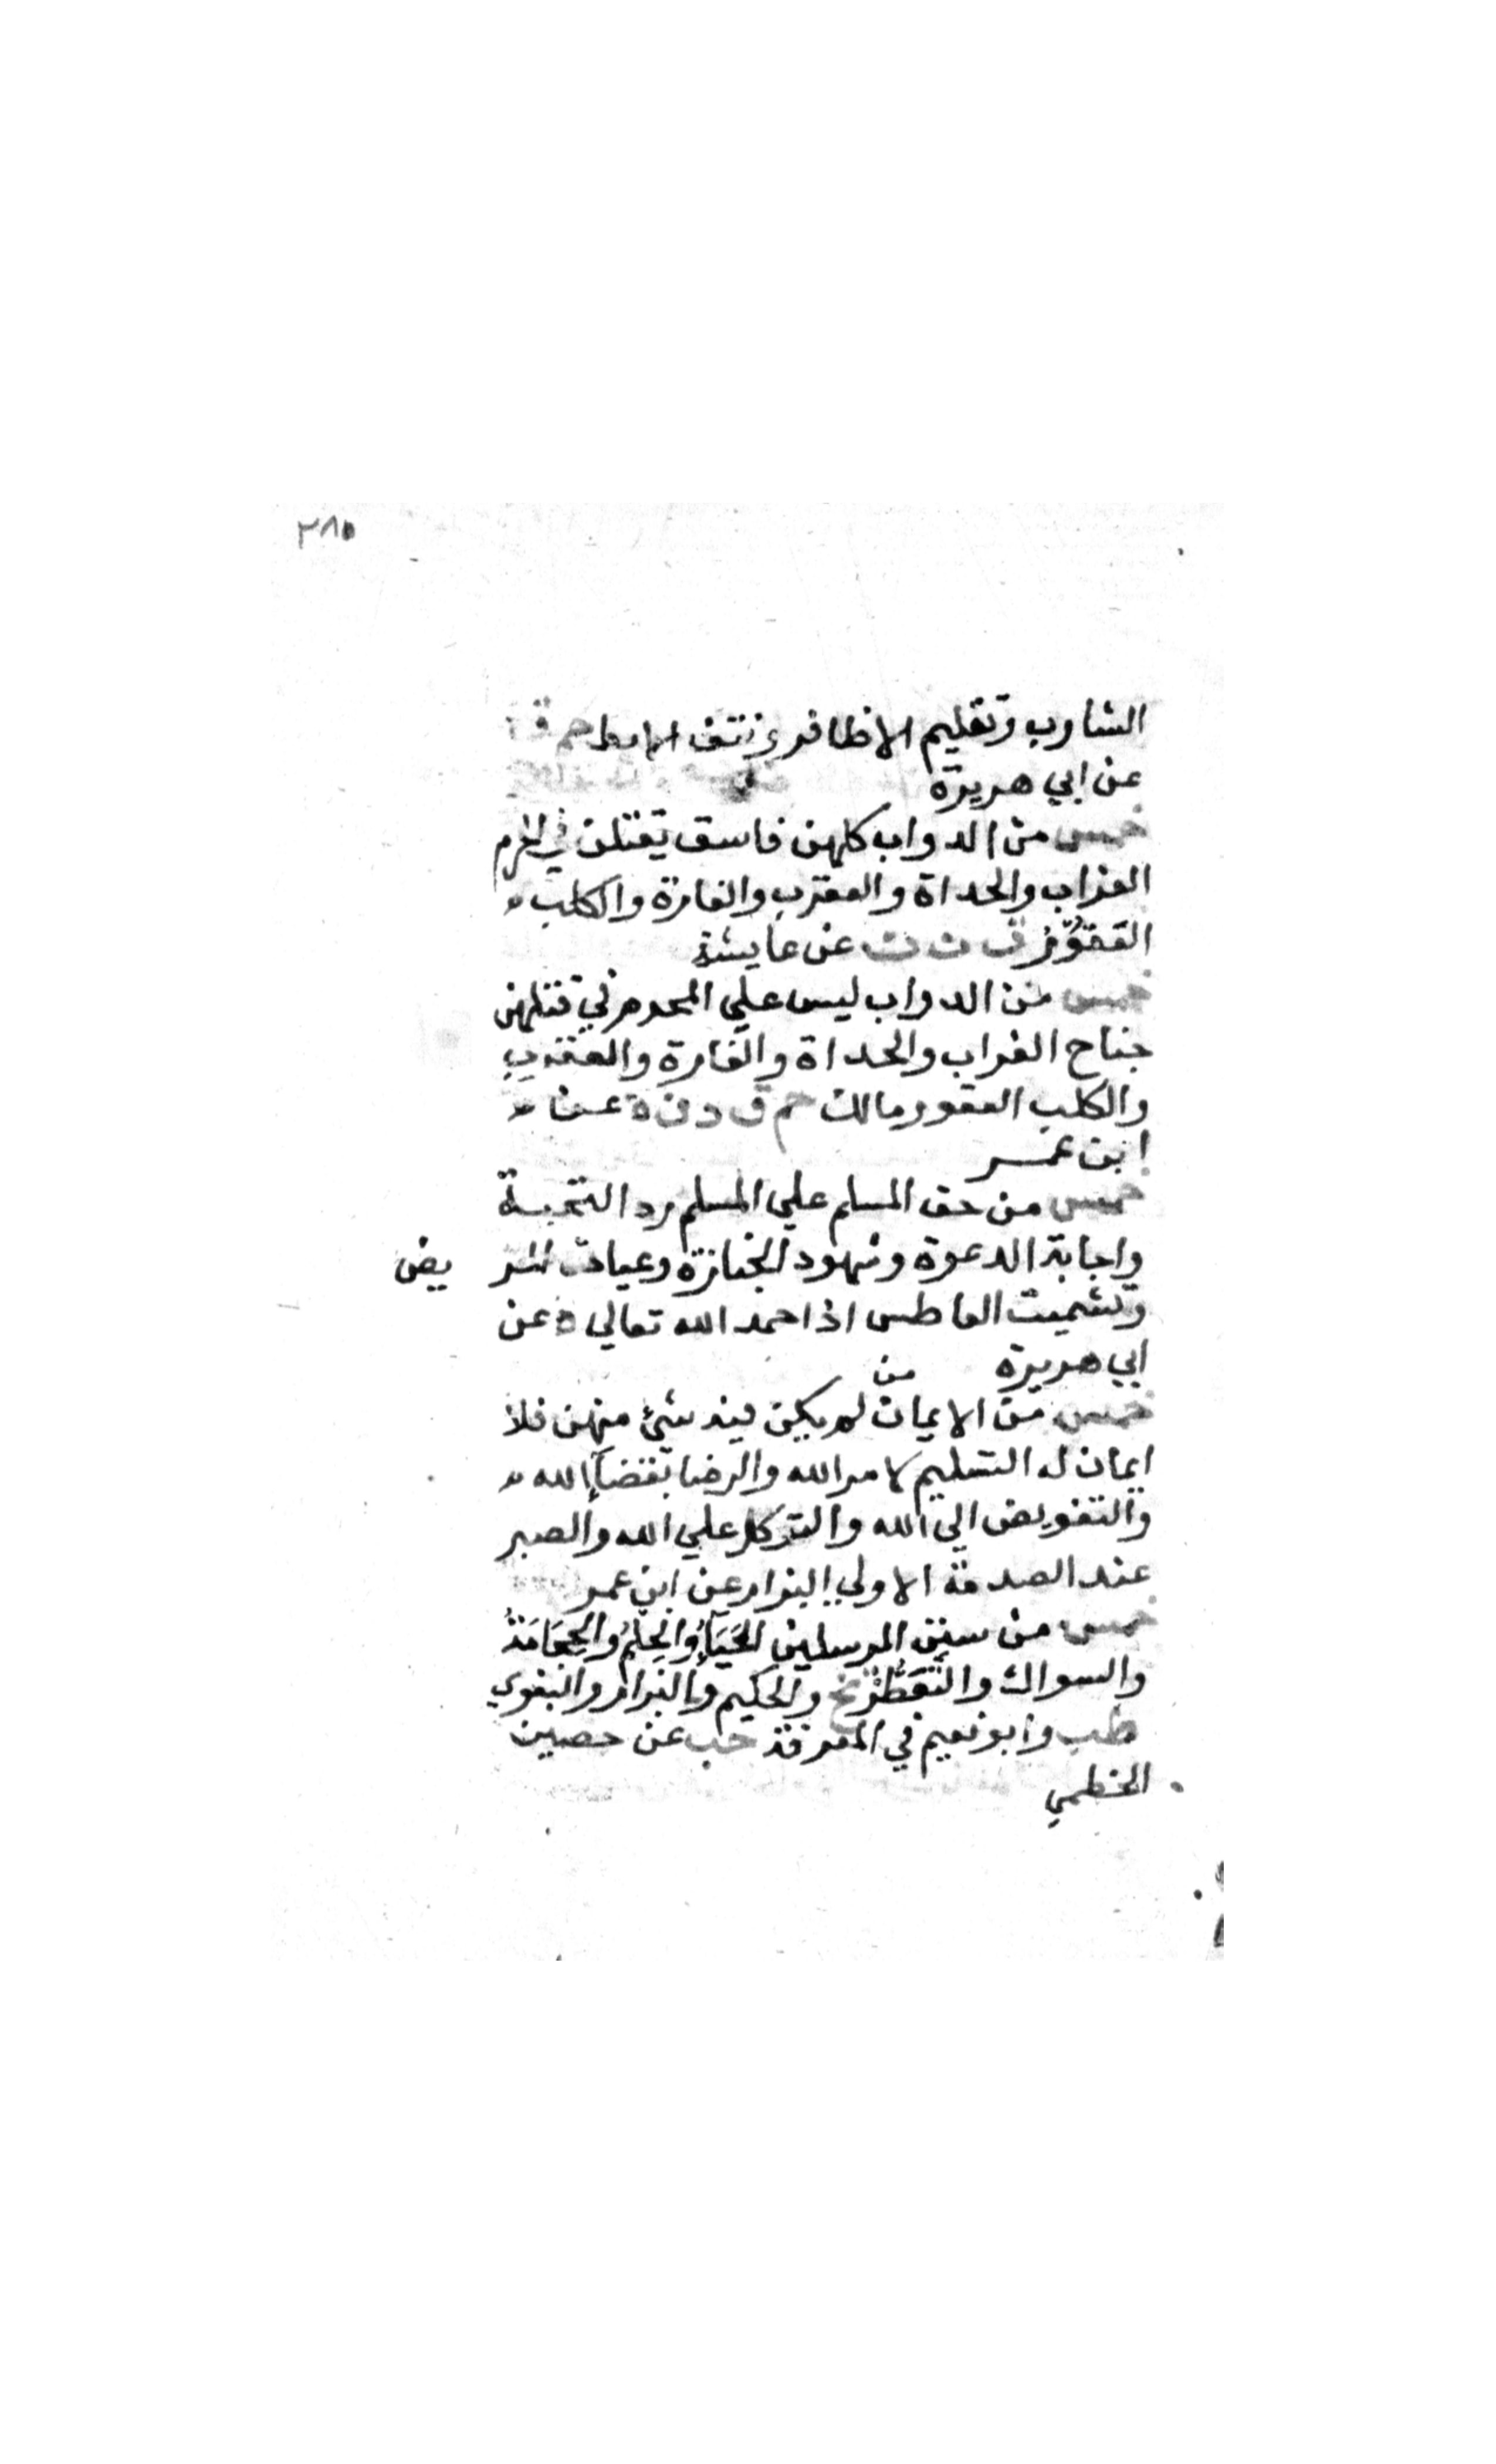 ٣٨٥
الشارب وتقليم الاظافر ونتف الابط حم ق
عن ابي هريرة
خمس من الدواب كلهن فاسق يقتلن في الحرم
الغراب والحداة والعقرب والفارة والكلب
العقور ق ت ن عن عايشة
خمس من الدواب ليس علي المحرم في قتلهن
جناح الغراب والحداة والفارة والعقرب
والكلب العقور مالك حم ق د ن ه عن
ابن عمر
خمس من حق المسلم علي المسلم رد التحية
واجابة الدعوة وشهود الجنازة وعيادت المريض
وتشميت العاطس اذا حمد الله تعالي ه عن
ابي هريرة
خمس من الايمان من لم يكن فيه شئ منهن فلا
ايمان له التسليم لامر الله والرضا بقضآء الله
والتفويض الي الله والتوكل علي الله والصبر
عند الصدمة الاولي البزار عن ابن عمر
خمس من سنن المرسلين الحَيَآءُ والحِلْمُ والحِجَامَةُ
والسواك والتَّعَطُّرُ تخ والحكيم والبزار والبغوي
طب وابو نعيم في المعرفة هب عن حصين
الخطمي